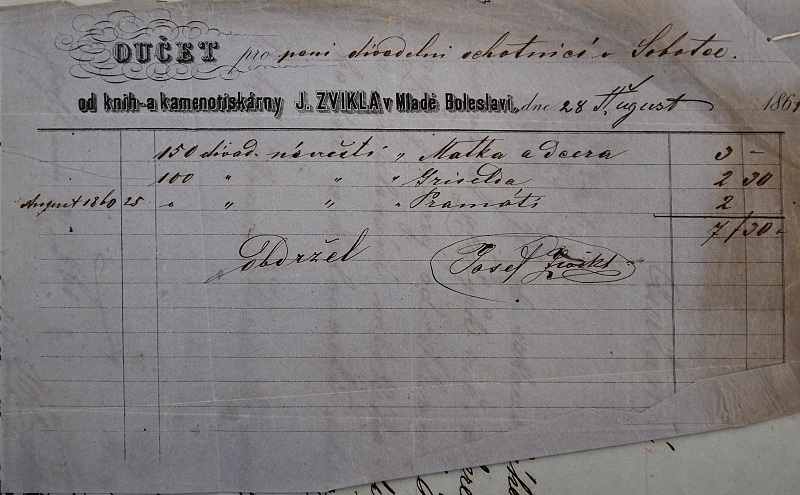 OUČET pro paní divadelní ochotnicí v Sobotce.
od knih- a kamenotiskárny J. ZVIKLA v Mladé Boleslavi, dne 28 August 1861
150 divad. návěstí „ Matka a dcera 3 –
100 „ „ „ Griselda 2 30
August 1860 25 „ „ „ „ Pramáti 2
7 30 -
Obdržel Josef Zvikl